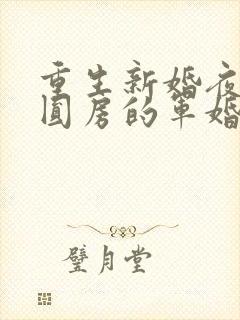 重生新婚夜
圆房的军婚
璧月堂